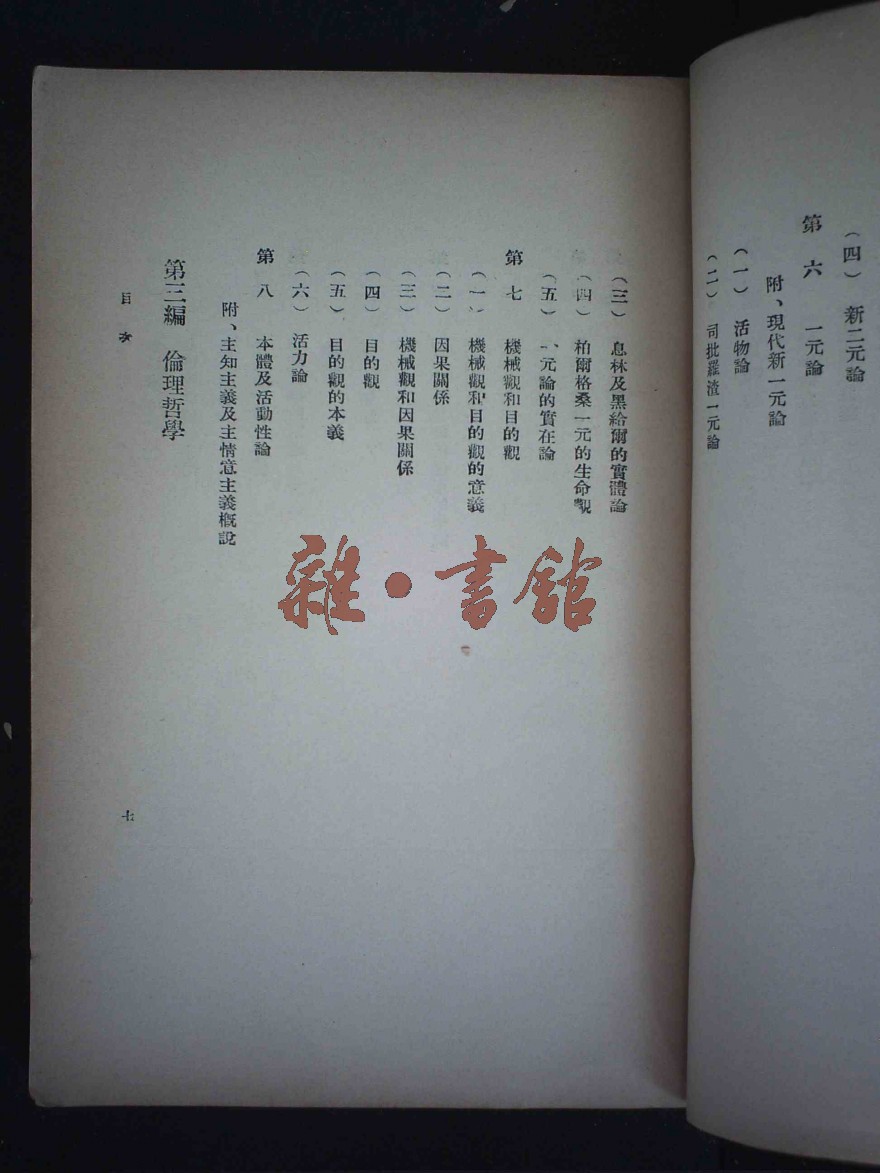 (四) 新二元論
附、現代新一元論
第六 一元論
(一) 活物論
(二) 司批羅渣一元論
(三) 息林及黑給爾的實體論
(四) 柏爾格桑一元的生命觀
(五) 一元論的實在論
第七 機械觀和目的觀
(一) 機械觀和目的觀的意義
(二) 因果關係
(三) 機械觀和因果關係
(四) 目的觀
(五) 目的觀的本義
(六) 活力論
第八 本體及活動性論
附、主知主義及主情意主義概說
第三編 倫理哲學
目次
七
雜·書館